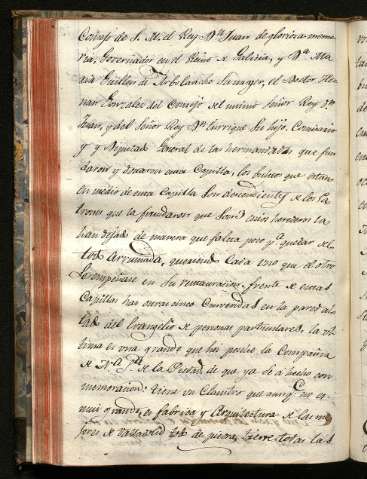 Consejo de S. M. el Rey Dn. Juan de gloriosa memo
ria, Governador en el Reino de Galicia, y Da. Ma
ria su muger, el Doctor Her
nan Gonzalez del Consejo del mismo Señor Rey Dn.
Juan, y del Señor Rey Dn. Enrrique su hijo, Comisario
y Diputado General de las hermandades que fun
daron y dotaron esta Capilla, los bultos que estan
en medio de esta Capilla son de los Pa
tronos que la fundaron que sus herederos la
han dejado de manera que falta poco pa. quedar de
todo Arruinada, queriendo Cada uno que el otro
Compiense en su restauracion, frente de estas
Capillas hay otras cinco en la pared al
lado del Evangelio de personas particulares, la ul
tima es una grande que hoy posehe la Compañia
de Na. Sa. de la Piedad de que ya se a hecho con
memoracion: tiene un Claustro que aunqe. no es
mui grande, es fabrica y Arquitectura de las me
jores de Valladolid todo de piedra, tiene todas las